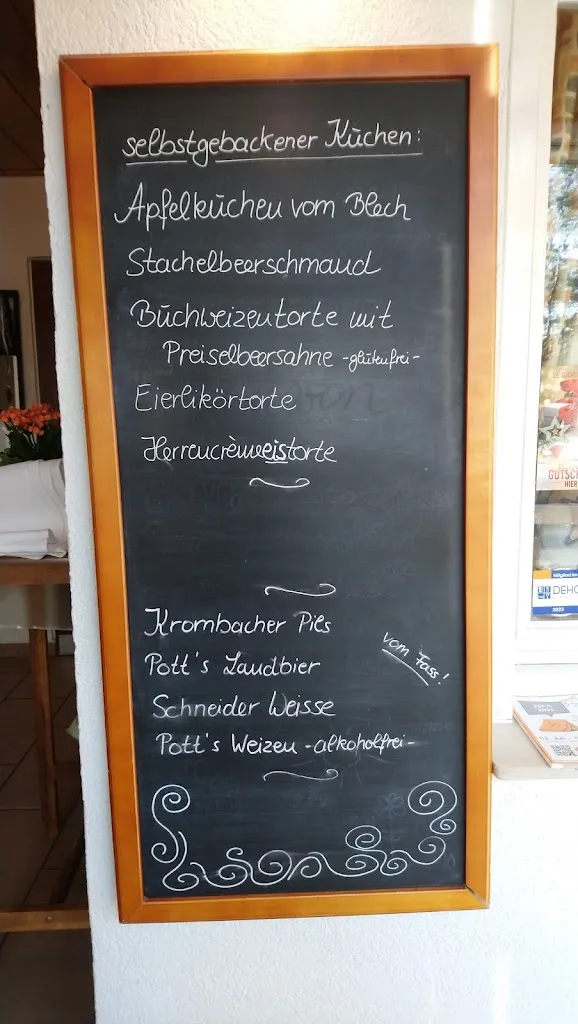 selbstgebackener Kuchen:
Apfelkuchen vom Blech
Stachelbeerschmand
Buchweizentorte mit
Preiselbeersahne -glutenfrei-
Eierlikörtorte
Herrencrèmeeistorte
Krombacher Pils
vom Fass!
Pott's Landbier
Schneider Weisse
Pott's Weizen -alkoholfrei-
GUTSCH
HIER
DEHO
2022